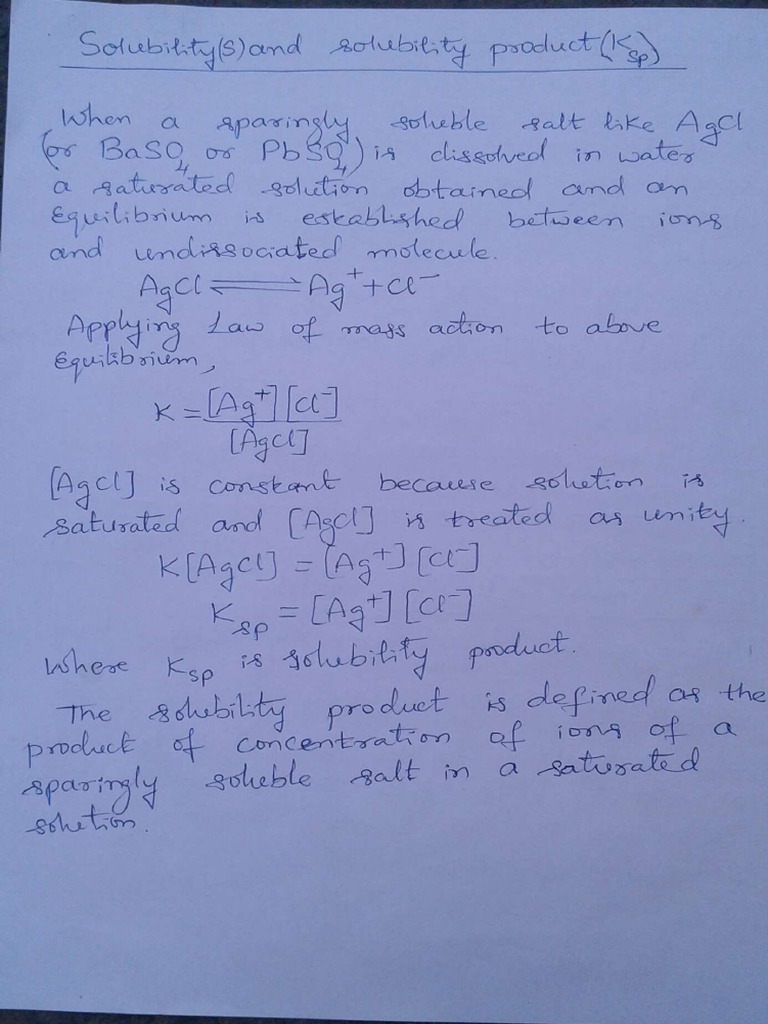 Solubility(S) and solubility product (Ksp)
When a sparingly soluble salt like AgCl
(or BaSO4 or PbSO4) is dissolved in water
a saturated solution obtained and an
Equilibrium is established between ions
and undissociated molecule.
AgCl ⇌ Ag⁺ + Cl⁻
Applying Law of mass action to above
Equilibrium,
K = [Ag⁺] [Cl⁻]
[AgCl]
[AgCl] is constant because solution is
saturated and [AgCl] is treated as unity.
K[AgCl] = [Ag⁺] [Cl⁻]
Ksp = [Ag⁺] [Cl⁻]
Where Ksp is solubility product.
The solubility product is defined as the
product of concentration of ions of a
sparingly soluble salt in a saturated
solution.